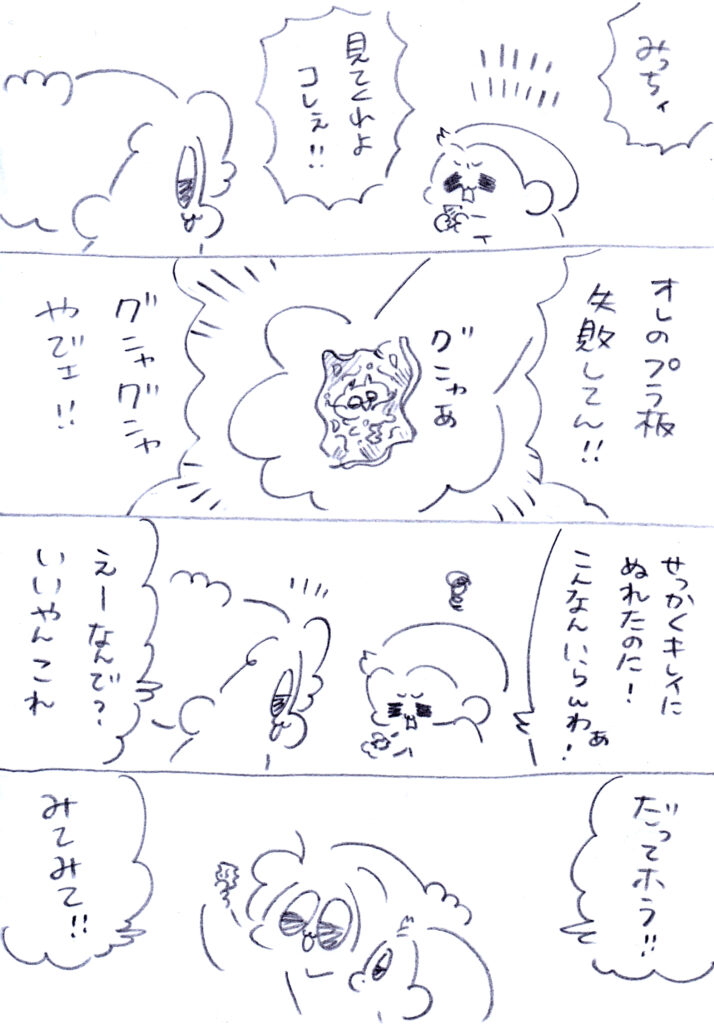 みっちィ
見てくれよ
コレェ!!
オレのプラ板
失敗してん!!
グニャあ
グニャグニャ
やでェ!!
せっかくキレイに
ぬれたのに!
こんなんいらんわぁ!
えーなんで?
いいやんこれ
だってホラ!!
みてみて!!